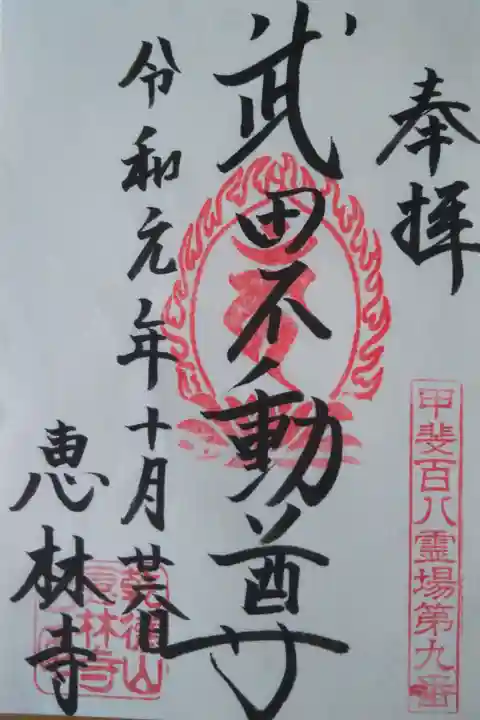 奉拝
甲斐百八霊場第九番
武田不動尊
令和元年十月廿六日
恵林寺